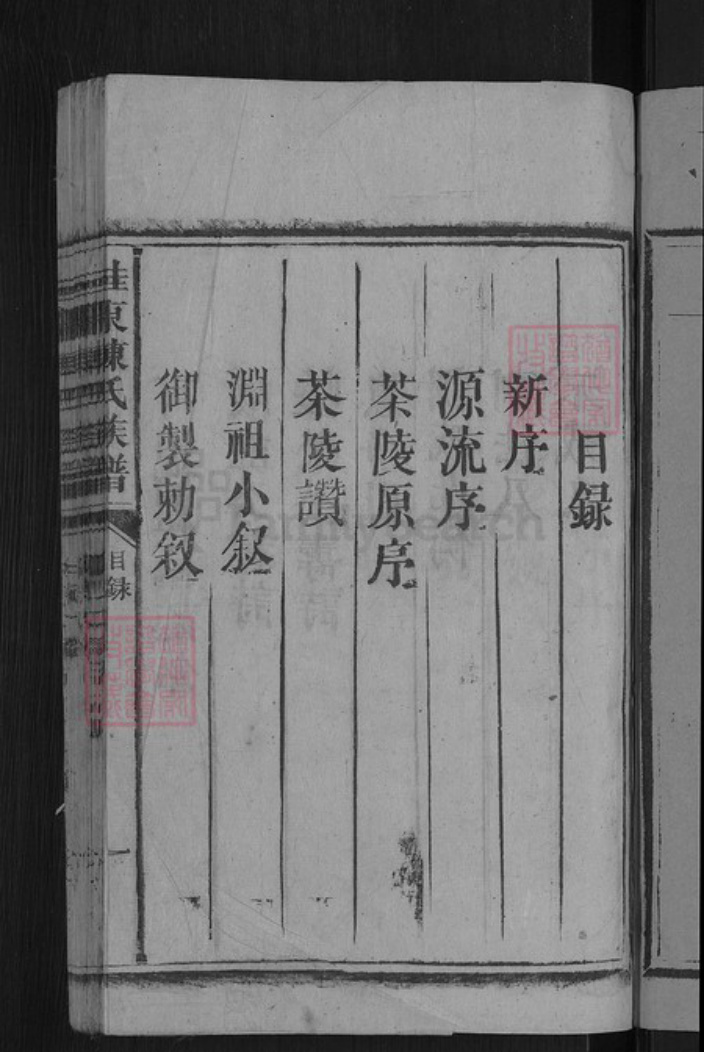 目録
新序
源流序
茶陵原序
茶陵讚
淵祖小叙
御製勅叙
桂東陳氏族譜
目録
一
familysearch